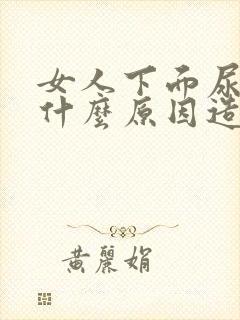 女人下而尿
什麼原因造
黃麗娟